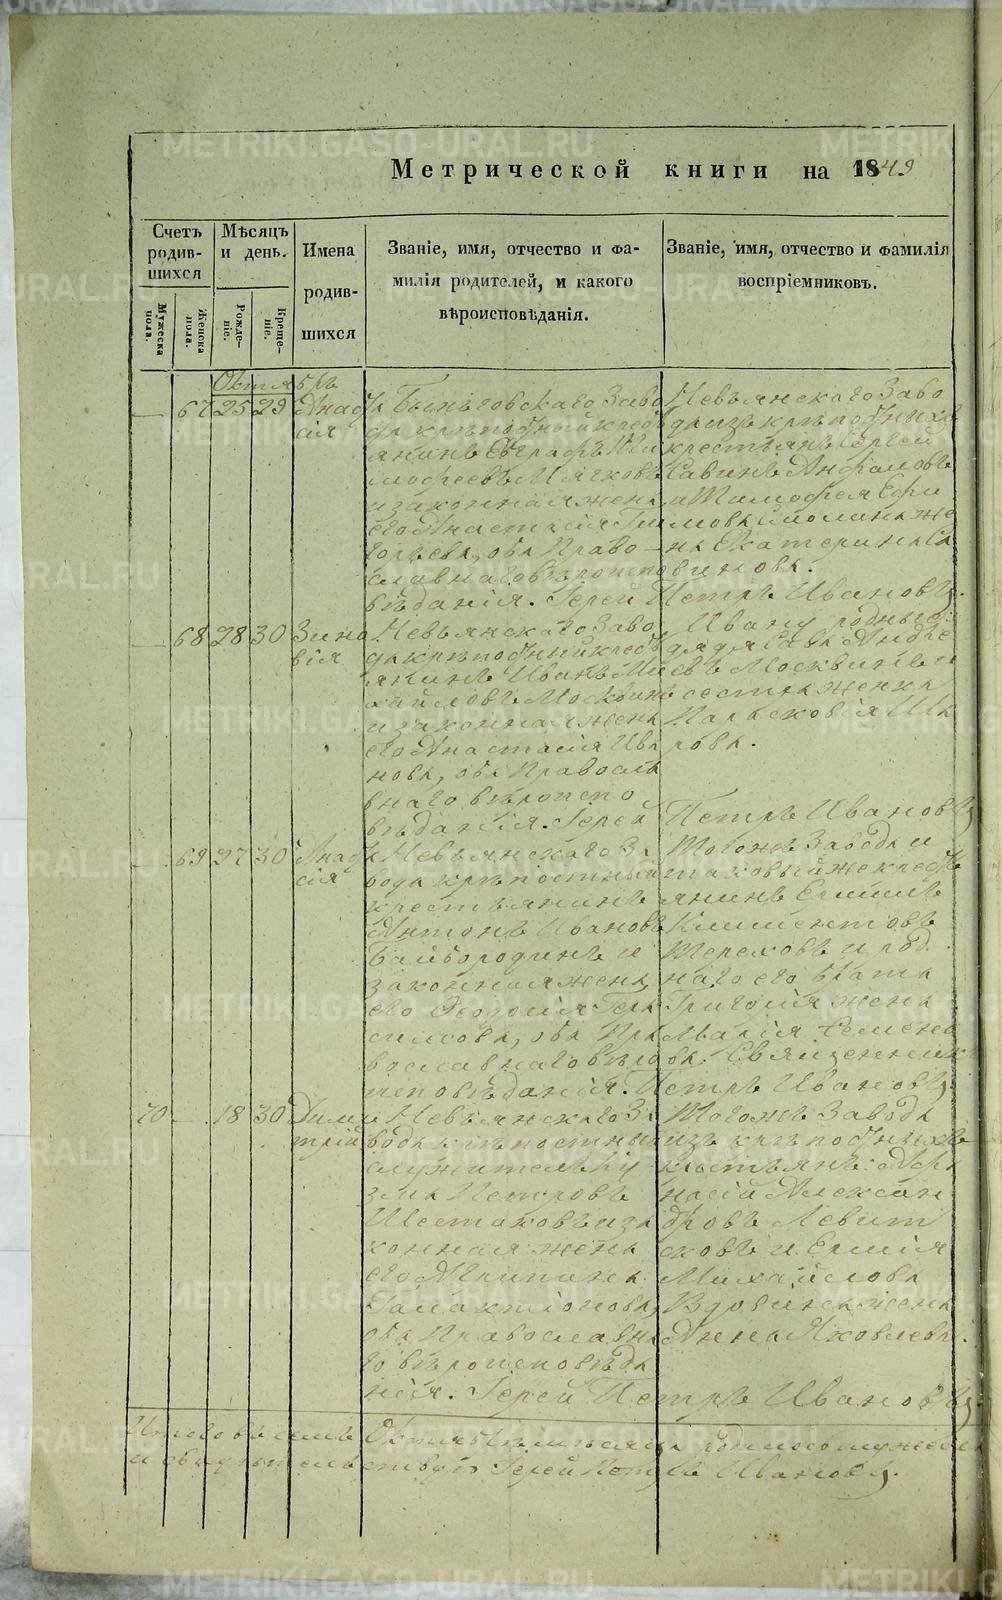 Метрической книги на 1849
Счетъ родив-шихся
Мѣсяцъ и день.
Имена родив-шихся
Званіе, имя, отчество и фа-
милія родителей, и какого
вѣроисповѣданія.
Званіе, имя, отчество и фамилія
воспріемниковъ.
Мужеска пола.
Женска пола.
Рожде-ніе.
Креще-ніе.
Октябрь
67 25 29 Анаста
сія
Быньговскаго Заво
да крѣпостный крест
янинъ Евграфъ Ти
мофеевъ Мячковъ
и законная жена
его Анастасія Гри
горьева, оба Право
славнаго вѣроиспо
вѣданія. Іерей Петръ Ивановъ.
Невьянскаго Заво
да изъ крѣпостныхъ
крестьянъ Сергей
Савинъ
и Тимофея Ефи
мова жe
на Екатерина Са
винова.
68 28 30 Зино
вія
Невьянскаго Заво
да крѣпостный крест
янинъ Иванъ Ми
хайловъ Москвинъ
и законная жена
его Анастасія Ива
нова, оба Правосла
внаго вѣроиспо
вѣданія. Іерей Петръ Ивановъ
Ивану родный
дядя Сава Андре
евъ Москвинъ и
сестра женка
Парасковія Ива
нова.
69 27 30 Анаста
сія
Невьянскаго За
вода крѣпостный
крестьянинъ
Антонъ Ивановъ
Байбородинъ и
законная жена
его Ѳедосія Гера
симова, оба Пра
вославнаго вѣро
исповѣданія. Петръ Ивановъ
Тогожъ Завода и
таковый же крест
янинъ
Климентовъ
Тереховъ и род
наго его брата
Григорія жена
Марія Семено
ва. Священникъ
70 — 18 30 Дими
трій
Невьянскаго За
вода крѣпостный
служитель Ку
зма Петровъ
Шестаковъ и за
конная жена
его Агрипина
Галактіонова,
оба Православна
го вѣроисповѣда
нія. Іерей Петръ Ивановъ
Тогожъ Завода
изъ крѣпостныхъ
крестьянъ: Афа
насій Алексан
дровъ Левит
сковъ и
Михайлова
Вдовина жена
Анна Яковлева.
Итого въ семъ Октябрѣ мѣсяцѣ
свидѣтельствую Іерей Петръ Ивановъ.
METRIKI.GASO-URAL.RU